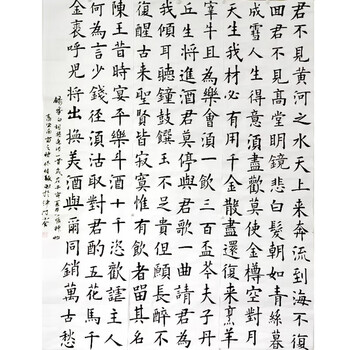 君不見黃河之水天上來奔流到海不復
回君不見高堂明鏡悲白髮朝如青絲暮
成雪人生得意須盡歡莫使金樽空對月
天生我材必有用千金散盡還復來烹羊
宰牛且為樂會須一飲三百盃岑夫子丹
丘生將進酒君莫停與君歌一曲請君為
我傾耳聽鐘鼓饌玉不足貴但願長醉不
復醒古來聖賢皆寂寞惟有飲者留其名
陳王昔時宴平樂斗酒十千恣歡謔主人
何為言少錢徑須沽取對君酌五花馬千
金裘呼兒將出換美酒與爾同銷萬古愁